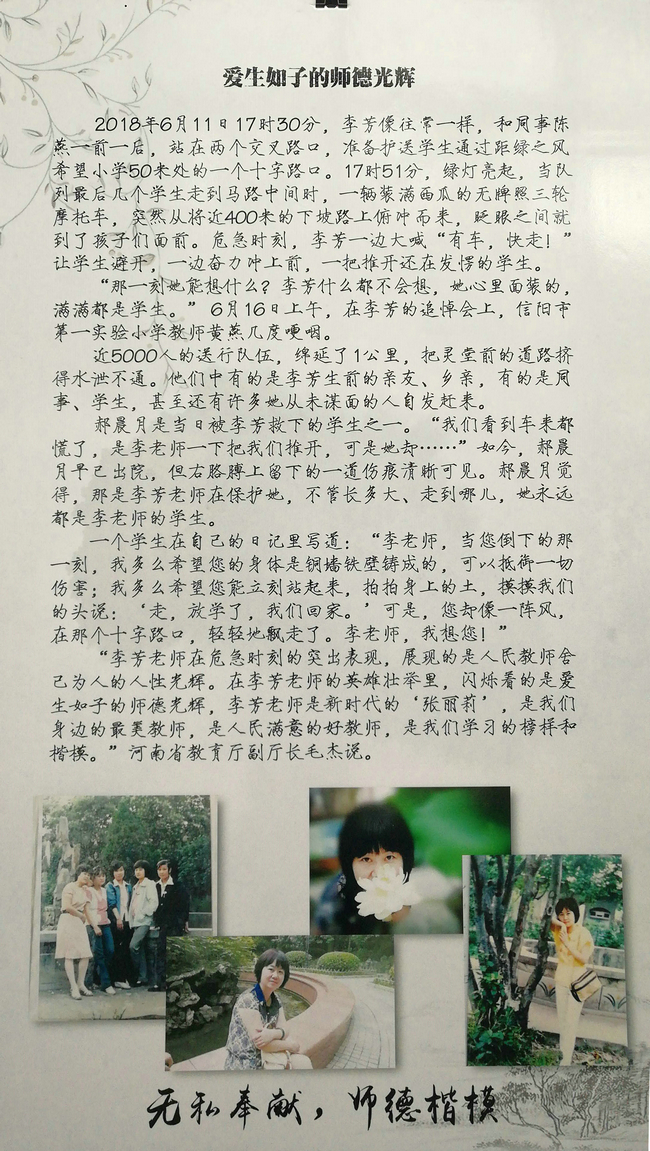 爱生如子的师德光辉
2018年6月11日17时30分，李芳像往常一样，和同事陈
燕一前一后，站在两个交叉路口，准备护送学生通过距绿之风
希望小学50米处的一个十字路口。17时51分，绿灯亮起，当队
列最后几个学生走到马路中间时，一辆装满西瓜的无牌照三轮
摩托车，突然从将近400米的下坡路上俯冲而来，眨眼之间就
到了孩子们面前。危急时刻，李芳一边大喊“有车，快走！”
让学生避开，一边奋力冲上前，一把推开还在发愣的学生。
“那一刻她能想什么？李芳什么都不会想，她心里面装的，
满满都是学生。”6月16日上午，在李芳的追悼会上，信阳市
第一实验小学教师黄燕几度哽咽。
近5000人的送行队伍，绵延了1公里，把灵堂前的道路挤
得水泄不通。他们中有的是李芳生前的亲友、乡亲，有的是同
事、学生，甚至还有许多她从未谋面的人自发赶来。
郝晨月是当日被李芳救下的学生之一。“我们看到车来都
慌了，是李老师一下把我们推开，可是她却……”如今，郝晨
月早已出院，但右胳膊上留下的一道伤痕清晰可见。郝晨月觉
得，那是李芳老师在保护她，不管长多大、走到哪儿，她永远
都是李老师的学生。
一个学生在自己的日记里写道：“李老师，当您倒下的那
一刻，我多么希望您的身体是铜墙铁壁铸成的，可以抵御一切
伤害；我多么希望您能立刻站起来，拍拍身上的土，摸摸我们
的头说：‘走，放学了，我们回家。’可是，您却像一阵风，
在那个十字路口，轻轻地飘走了。李老师，我想您！”
“李芳老师在危急时刻的突出表现，展现的是人民教师舍
己为人的人性光辉。在李芳老师的英雄壮举里，闪烁着的是爱
生如子的师德光辉，李芳老师是新时代的‘张丽莉’，是我们
身边的最美教师，是人民满意的好教师，是我们学习的榜样和
楷模。”河南省教育厅副厅长毛杰说。
无私奉献，师德楷模